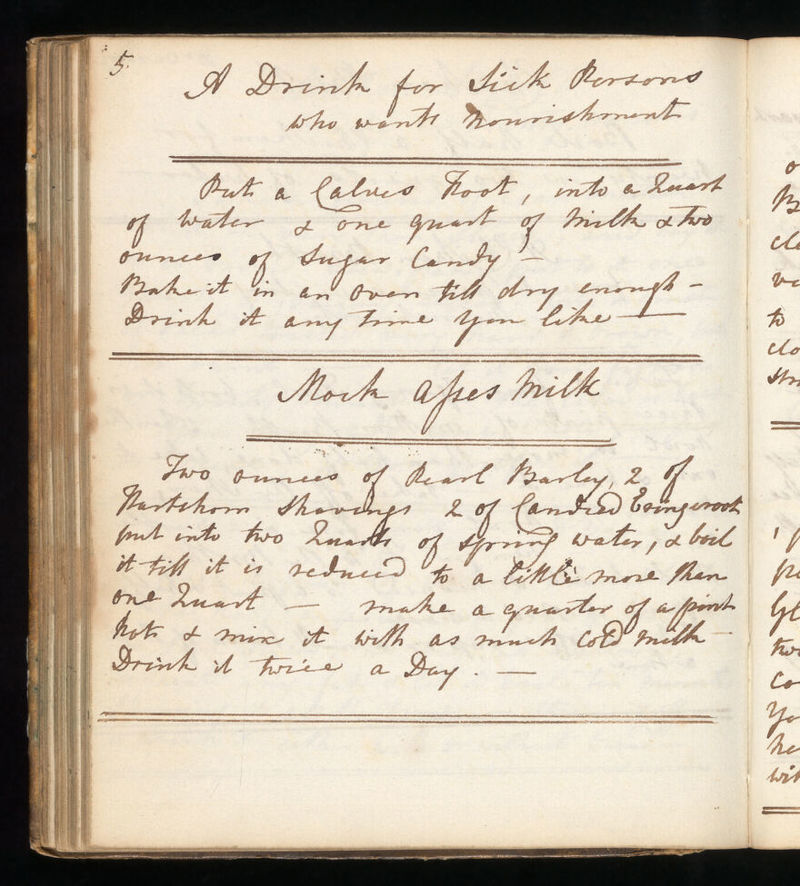 5.
A Drink for Sick Persons
who wants Nourishment
Put a Calves Foot, into a Quart
of water & one quart of Milk & two
ounces of Sugar Candy –
Bake it in an oven till dry enough –
Drink it any time you like —
Mock Asses Milk
Two ounces of Pearl Barley, 2 of
Hartshorn Shavings 2 of Candied Eringoroot
put into two Quarts of spring water, & boil
it till it is reduced to a little more than
one Quart — make a quarter of a pint
hot & mix it with as much cold milk –
Drink it twice a Day. —